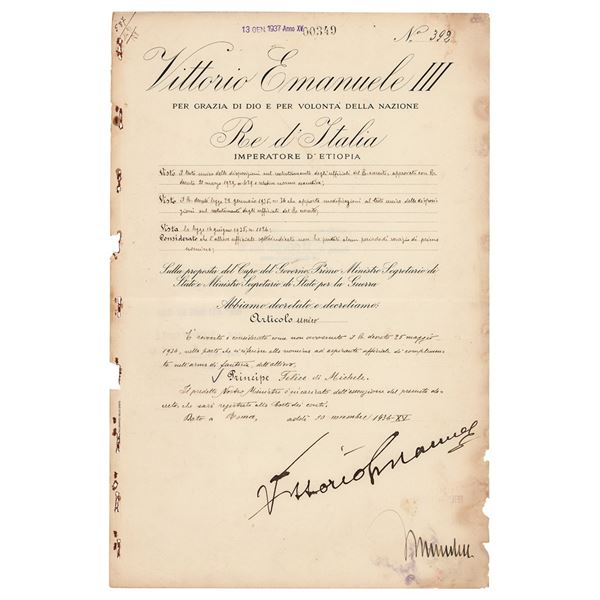 13 GEN. 1937 Anno XV 00349
No 392
Vittorio Emanuele III
PER GRAZIA DI DIO E PER VOLONTÀ DELLA NAZIONE
Re d'Italia
IMPERATORE D'ETIOPIA
Visto il testo unico delle disposizioni sul reclutamento degli ufficiali del R. esercito, approvato con R.
decreto 21 marzo 1929, n. 629 e relative norme esecutive;
Visto il R. decreto legge 28 gennaio 1935, n. 36 che apporta modificazioni al testo unico delle disposi-
zioni sul reclutamento degli ufficiali del R. esercito;
Vista la legge 16 giugno 1935, n. 1026;
Considerato che l'allievo ufficiale sottoindicato non ha prestato alcun periodo di servizio di prima
nomina;
Sulla proposta del Capo del Governo Primo Ministro Segretario di
Stato e Ministro Segretario di Stato per la Guerra
Abbiamo decretato e decretiamo:
Articolo unico
E' revocato e considerato come non avvenuto il R. decreto 28 maggio
1936, nella parte che si riferisce alla nomina ad aspirante ufficiale di complemento
nell'arma di fanteria, dell'allievo:
Principe Felice di Michele.
Il predetto Nostro Ministro è incaricato dell'esecuzione del presente de-
creto, che sarà registrato alla Corte dei conti.
Dato a Roma, addì 23 novembre 1936-XV.
Vittorio Emanuele